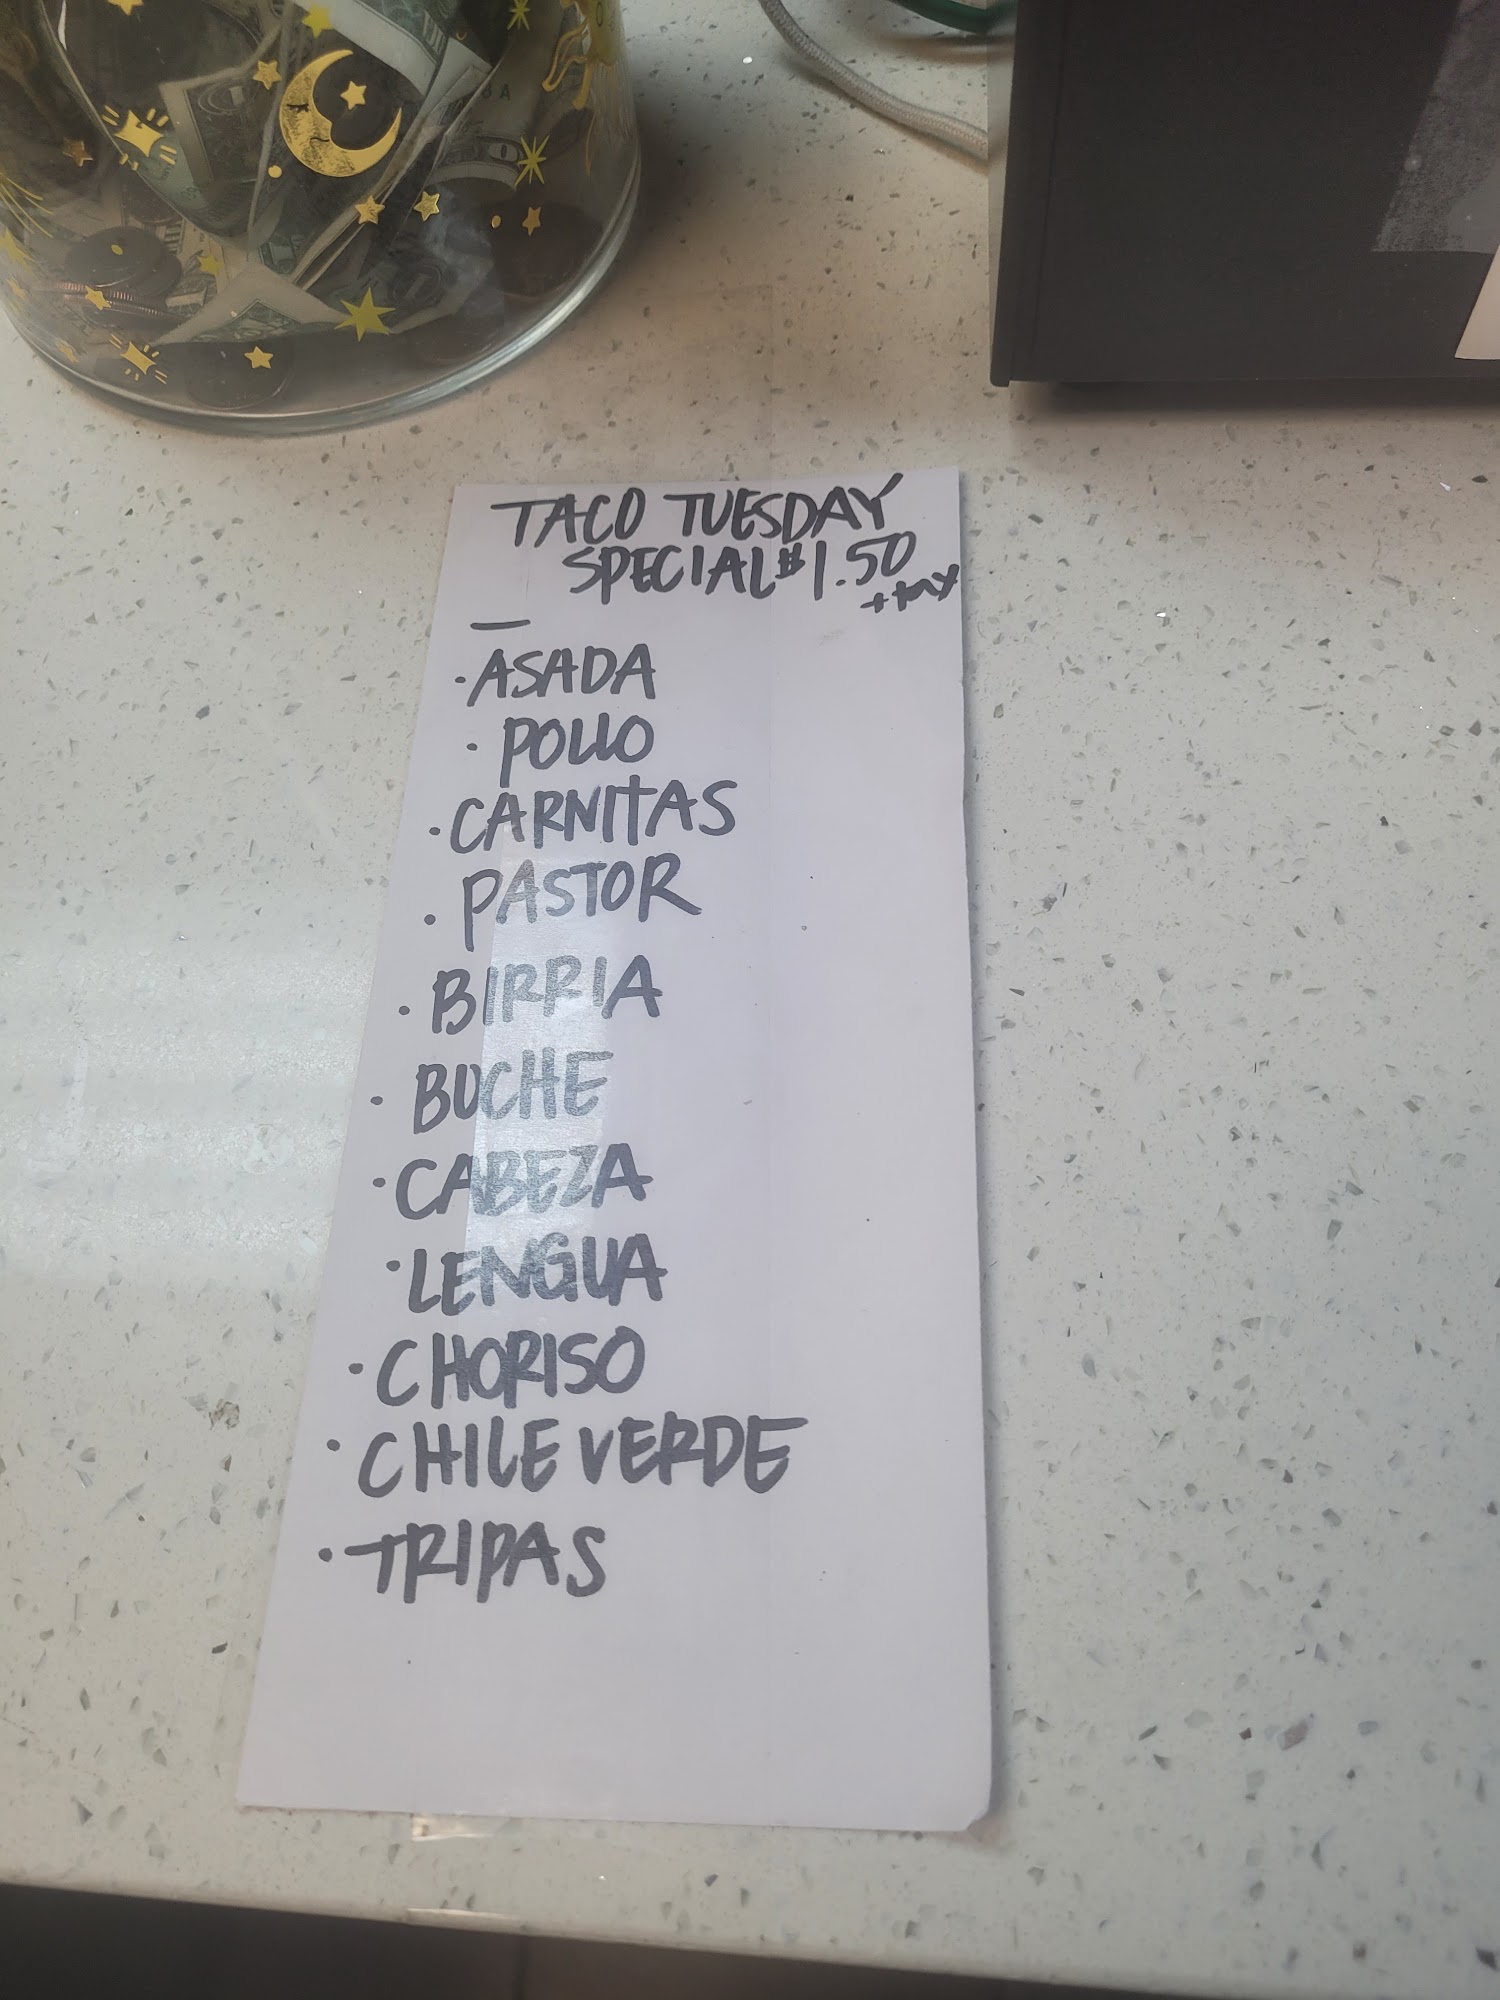 TACO TUESDAY
SPECIAL $1.50
+ tax
—
· ASADA
· POLLO
· CARNITAS
· PASTOR
· BIRRIA
· BUCHE
· CABEZA
· LENGUA
· CHORISO
· CHILE VERDE
· TRIPAS